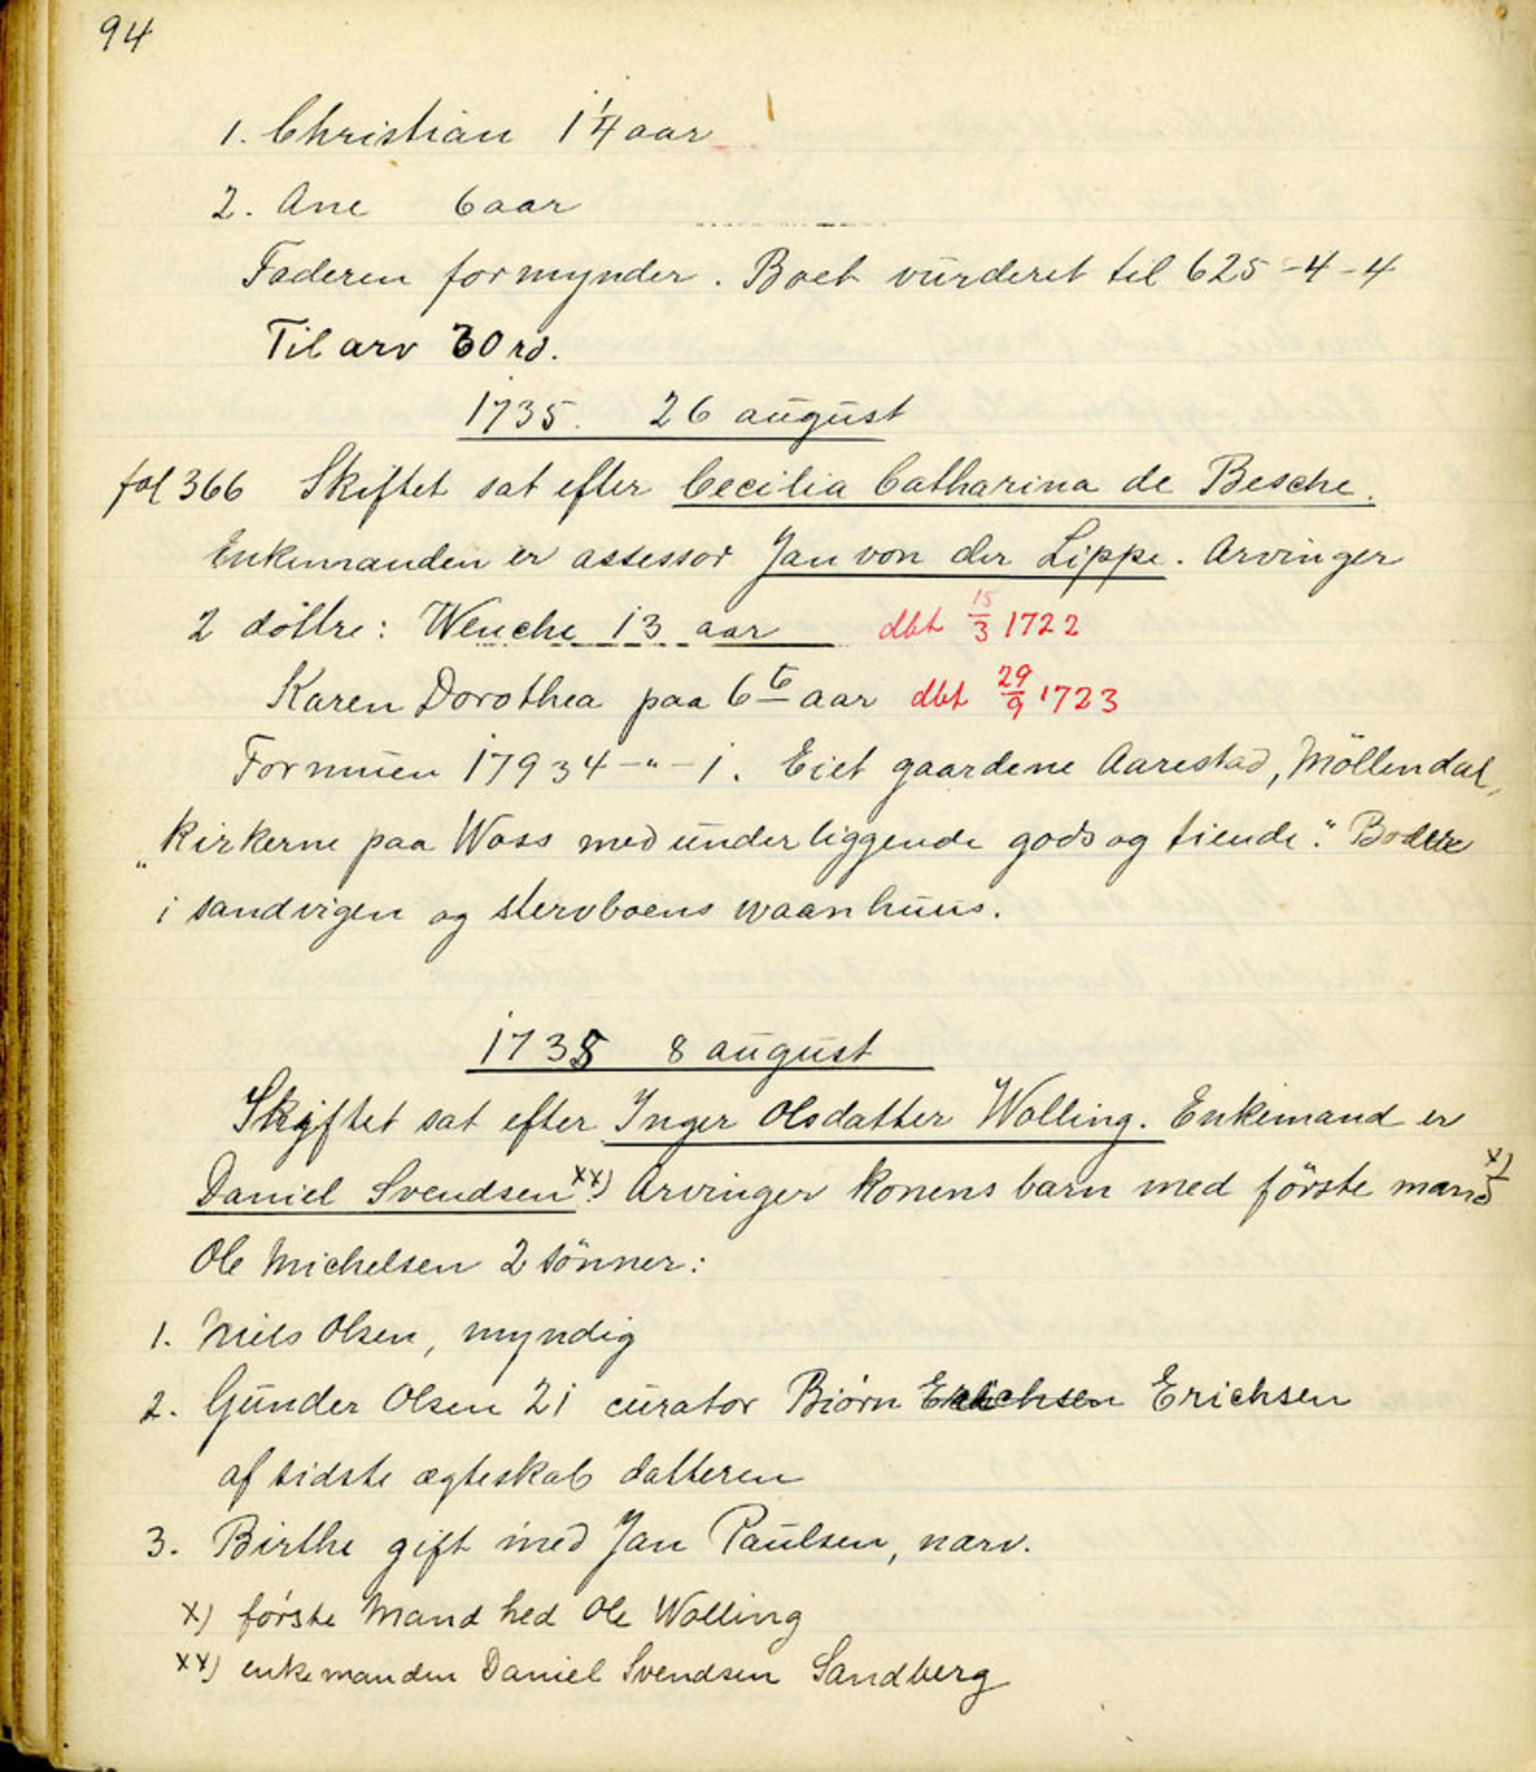 94
1. Christian 14 aar
2. Ane 6 aar
Faderen formynder. Boet vürderet til 625-4-4
Til arv 30 rd.
1735. 26 aügüst
fol 366 Skiftet sat efter Cecilia Catharina de Besche.
Enkemanden er assessor Jan von der Lippe. Arvinger
2 döttre: Wenche 13 aar dbt 15/3 1722
Karen Dorothea paa 6te aar dbt 29/9 1723
Formüen 17934-"-1. Eiet gaardene Aarestad, Möllendal,
"Kirkerne paa Woss med ünderliggende gods og tiende." Boder
i sandvigen og stervboens waanhüüs.
1735 8 aügüst
Skiftet sat efter Inger Olsdatter Wolling. Enkemand er
Daniel Svendsen xx) Arvinger konens barn med förste mand x)
Ole Michelsen 2 sönner:
1. Niels Olsen, myndig
2. Günder Olsen 21 cürator Biørn Erichsen
af sidste ægteskab datteren
3. Birthe gift med Jan Paülsen, narv.
x) første Mand hed Ole Wolling
xx) enkemanden Daniel Svendsen Sandberg